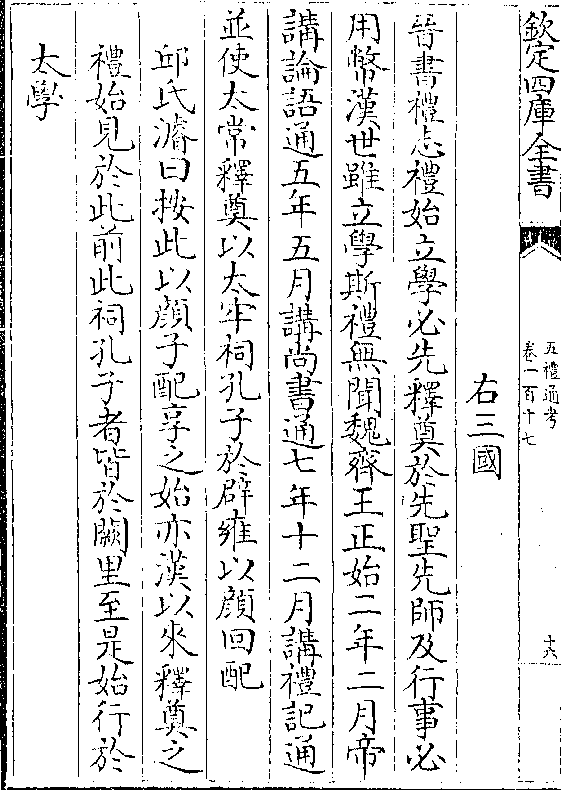 欽定四庫全書
五禮通考
卷一百十七
十六
右三國
晉書禮志禮始立學必先釋奠於先聖先師及行事必
用幣漢世雖立學斯禮無聞魏齊王正始二年二月帝
講論語通五年五月講尚書通七年十二月講禮記通
並使太常釋奠以太牢祠孔子於辟雍以顔回配
邱氏濬曰按此以顔子配享之始亦漢以來釋奠之
禮始見於此前此祠孔子者皆於闕里至是始行於
太學